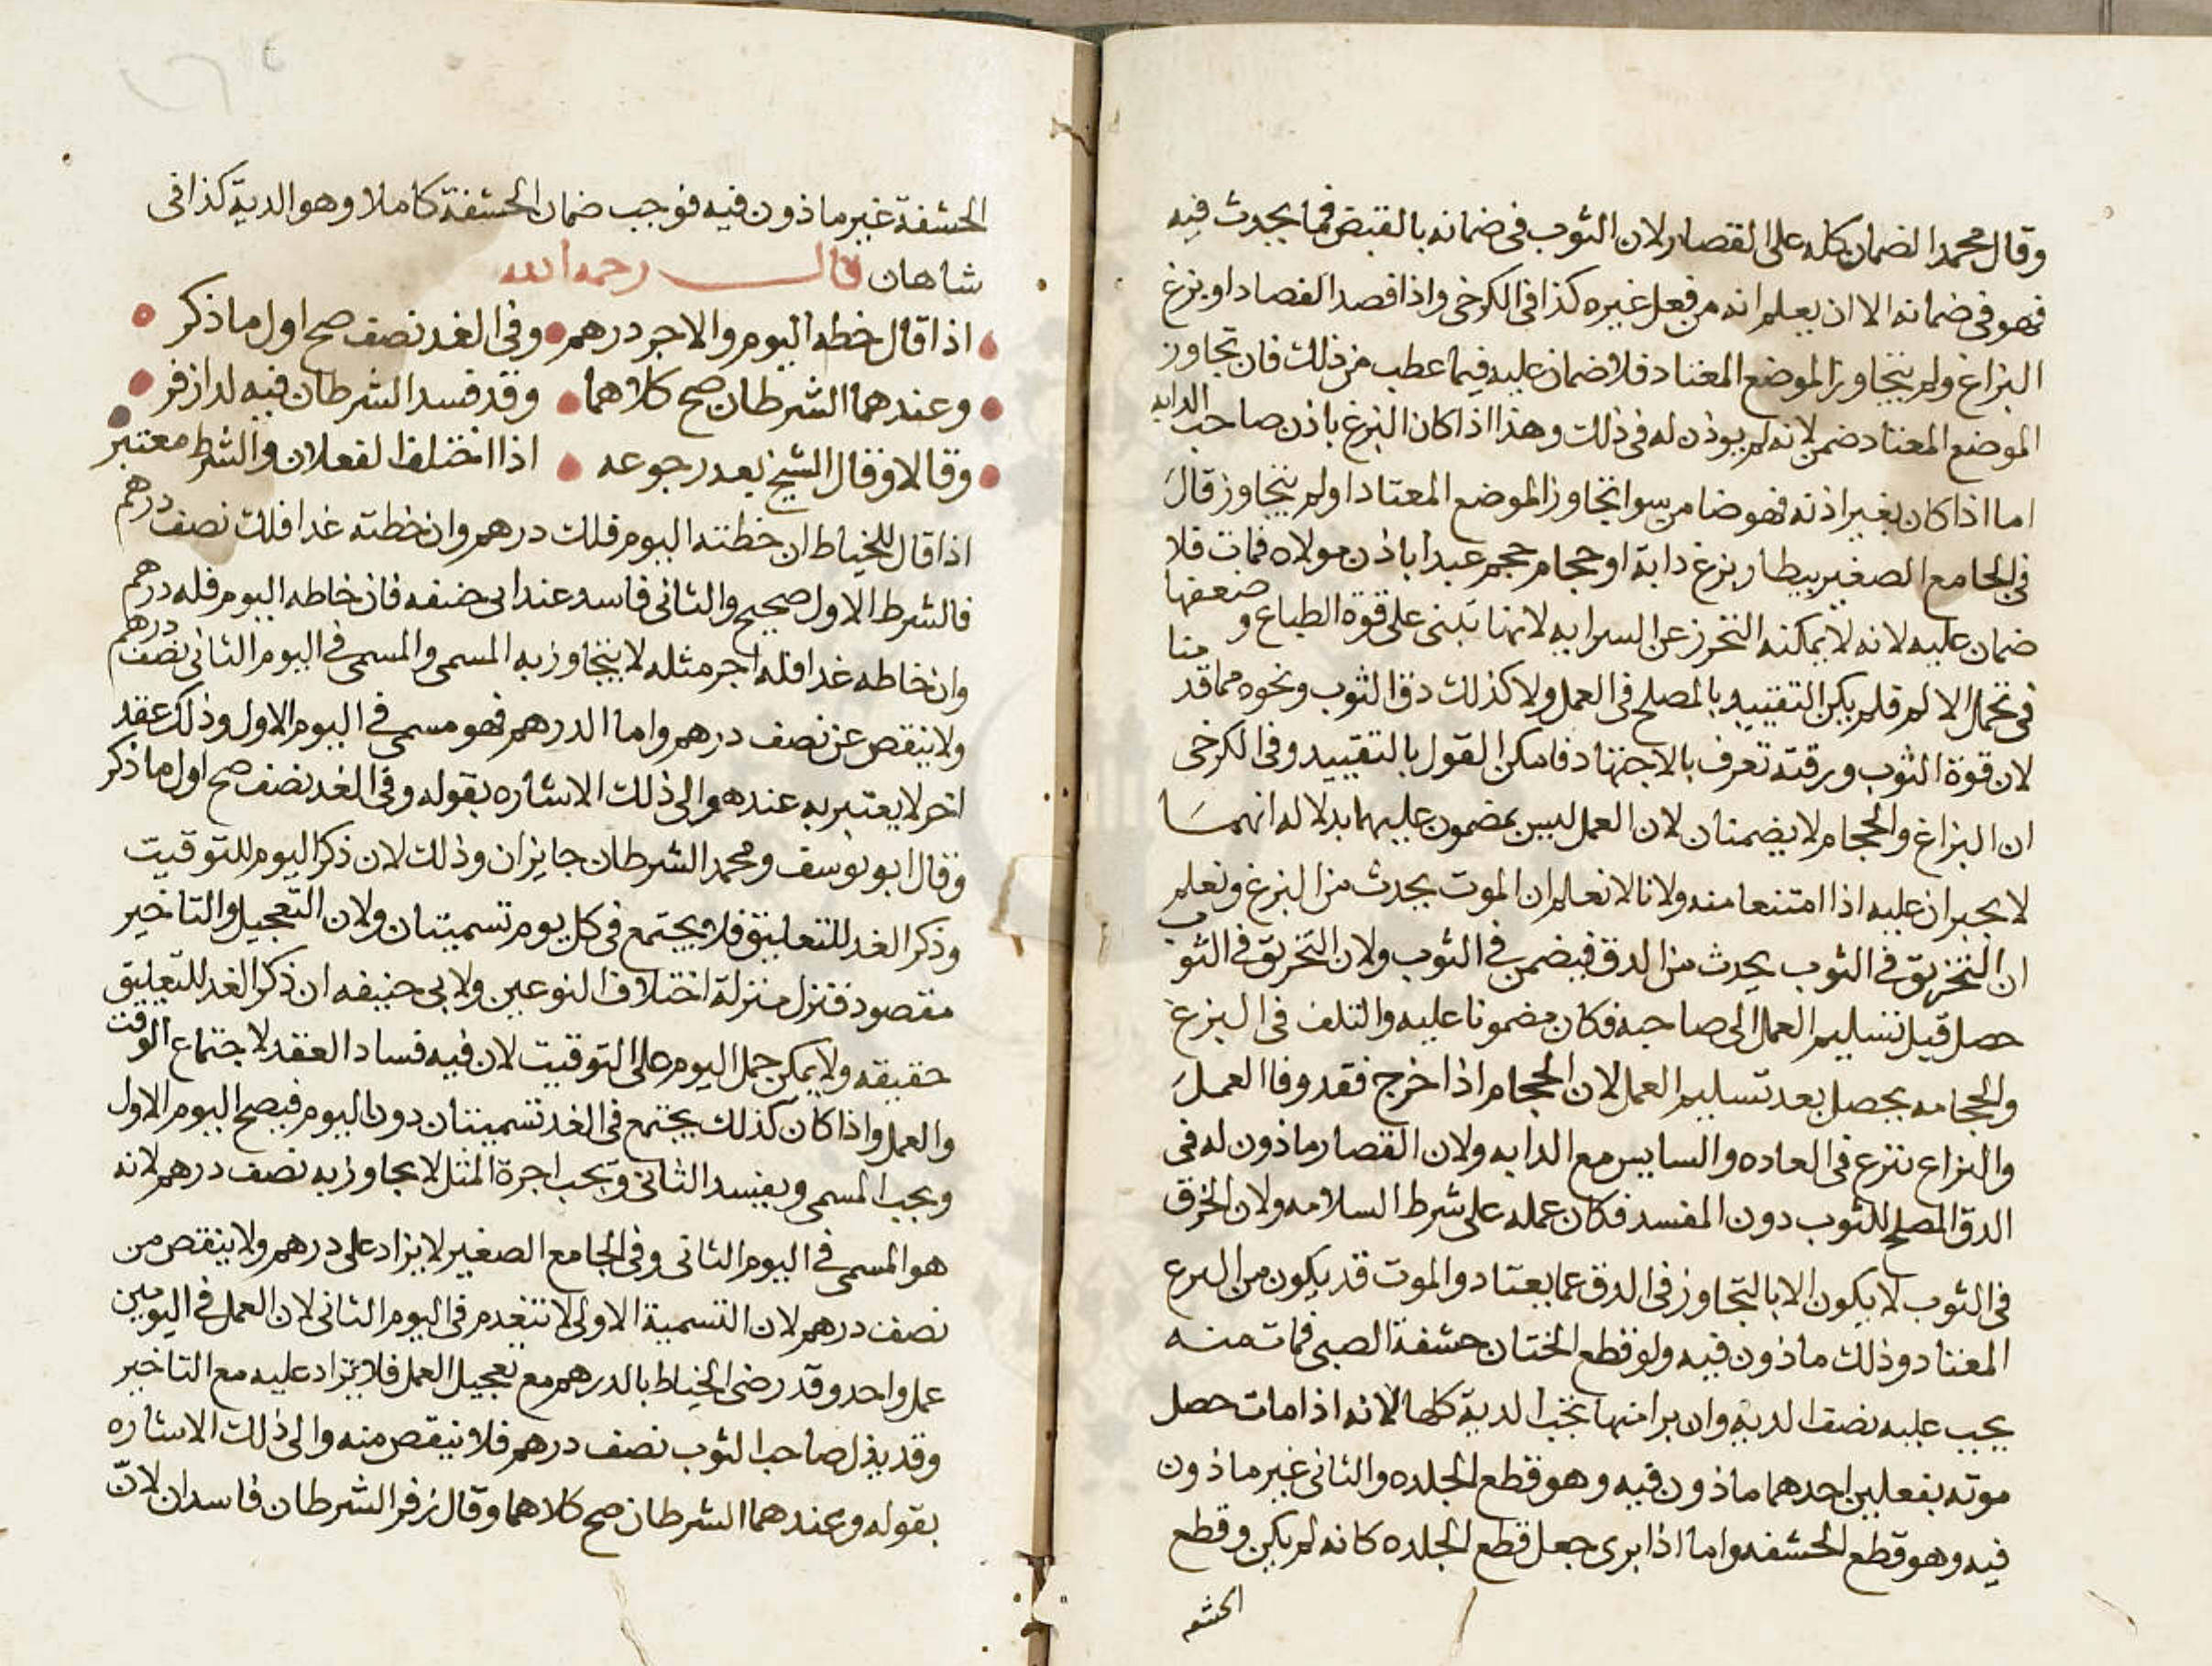 وقال محمد الضمان كله على القصار لان الثوب فى ضمانه بالقبض فما يحدث فيه
فهو فى ضمانه الا ان يعلم انه من فعل غيره كذا فى الكرخى واذا فصد الفصاد او بزغ
البزاغ ولم يتجاوز الموضع المعتاد فلا ضمان عليه فيما عطب من ذلك فان تجاوز
الموضع المعتاد ضمن لانه لم يوذن له فى ذلك وهذا اذا كان البزغ باذن صاحب الدابه
اما اذا كان بغير اذنه فهو ضامن سوا تجاوز الموضع المعتاد او لم يتجاوز قال
فى الجامع الصغير بيطار بزغ دابة او حجام حجم عبدا باذن مولاه فمات فلا
ضمان عليه لانه لا يمكنه التحرز عن السرايه لانها تبنى على قوة الطباع وضعفها
فى تحمل الالم فلم يكن التقييد بالمصلح فى العمل ولا كذلك دق الثوب ونحوه مما قدمنا
لان قوة الثوب ورقته تعرف بالاجتهاد فامكن القول بالتقييد وفى الكرخى
ان البزاغ والحجام لا يضمنان لان العمل ليس بمضمون عليهما بدلاله انهما
لا يجبران عليه اذا امتنعا منه ولانا لا نعلم ان الموت يحدث من البزغ ونعلم
ان التخريق فى الثوب يحدث من الدق فيضمن فى الثوب ولان التخريق فى الثوب
حصل قبل تسليم العمل الى صاحبه فكان مضمونا عليه والتلف فى البزغ
والحجامه يحصل بعد تسليم العمل لان الحجام اذا اخرج فقد وفا العمل
والبزاع يبزع فى العاده والسايس مع الدابه ولان القصار ماذون له فى
الدق المصلح للثوب دون المفسد فكان عمله على شرط السلامه ولان الخرق
فى الثوب لا يكون الا بالتجاوز فى الدق عما يعتاد والموت قد يكون من البزع
المعتاد وذلك ماذون فيه ولو قطع الختان حشفة الصبى فمات منه
يجب عليه نصف الدية وان برا منها تجب الدية كلها لانه اذا مات حصل
موته بفعلين احدهما ماذون فيه وهو قطع الجلده والثانى غير ماذون
فيه وهو قطع الحشفه واما اذا برى جعل قطع الجلده كانه لم يكن وقطع
الحشفه
الحشفة غير ماذون فيه فوجب ضمان الحشفة كاملا وهو الدية كذا فى
شاهان قال رحمه الله
اذا قال خطه اليوم والاجر درهم وفى الغد نصف صح اول ما ذكر
وعندهما الشرطان صح كلاهما وقد فسد الشرطان فيه لدا زفر
وقالا وقال الشيخ بعد رجوعه اذا اختلف الفعلان والشرط معتبر
اذا قال للخياط ان خطته اليوم فلك درهم وان خطته غدا فلك نصف درهم
فالشرط الاول صحيح والثانى فاسد عند ابى حنيفه فان خاطه اليوم فله درهم
وان خاطه غدا فله اجر مثله لا يتجاوز به المسمى والمسمى فى اليوم الثانى نصف درهم
ولا ينقص عن نصف درهم واما الدرهم فهو مسمى فى اليوم الاول وذلك عقد
اخر لا يعتبر به عنده والى ذلك الاشاره بقوله وفى الغد نصف صح اول ما ذكر
وقال ابو يوسف ومحمد الشرطان جايزان وذلك لان ذكر اليوم للتوقيت
وذكر الغد للتعليق فلا يجتمع فى كل يوم تسميتان ولان التعجيل والتاخير
مقصود فنزل منزلة اختلاف النوعين ولابى حنيفه ان ذكر الغد للتعليق
حقيقه ولا يمكن حمل اليوم على التوقيت لان فيه فساد العقد لاجتماع الوقت
والعمل واذا كان كذلك يجتمع فى الغد تسميتان دون اليوم فيصح اليوم الاول
ويجب المسمى ويفسد الثانى وتجب اجرة المثل لا يجاوز به نصف درهم لانه
هو المسمى فى اليوم الثانى وفى الجامع الصغير لا يزاد على درهم ولا ينقص من
نصف درهم لان التسمية الاولى لا تنعدم فى اليوم الثانى لان العمل فى اليومين
عمل واحد وقد رضى الخياط بالدرهم مع تعجيل العمل فلا يزاد عليه مع التاخير
وقد بذل صاحب الثوب نصف درهم فلا ينقص منه والى ذلك الاشاره
بقوله وعندهما الشرطان صح كلاهما وقال زفر الشرطان فاسدان لان